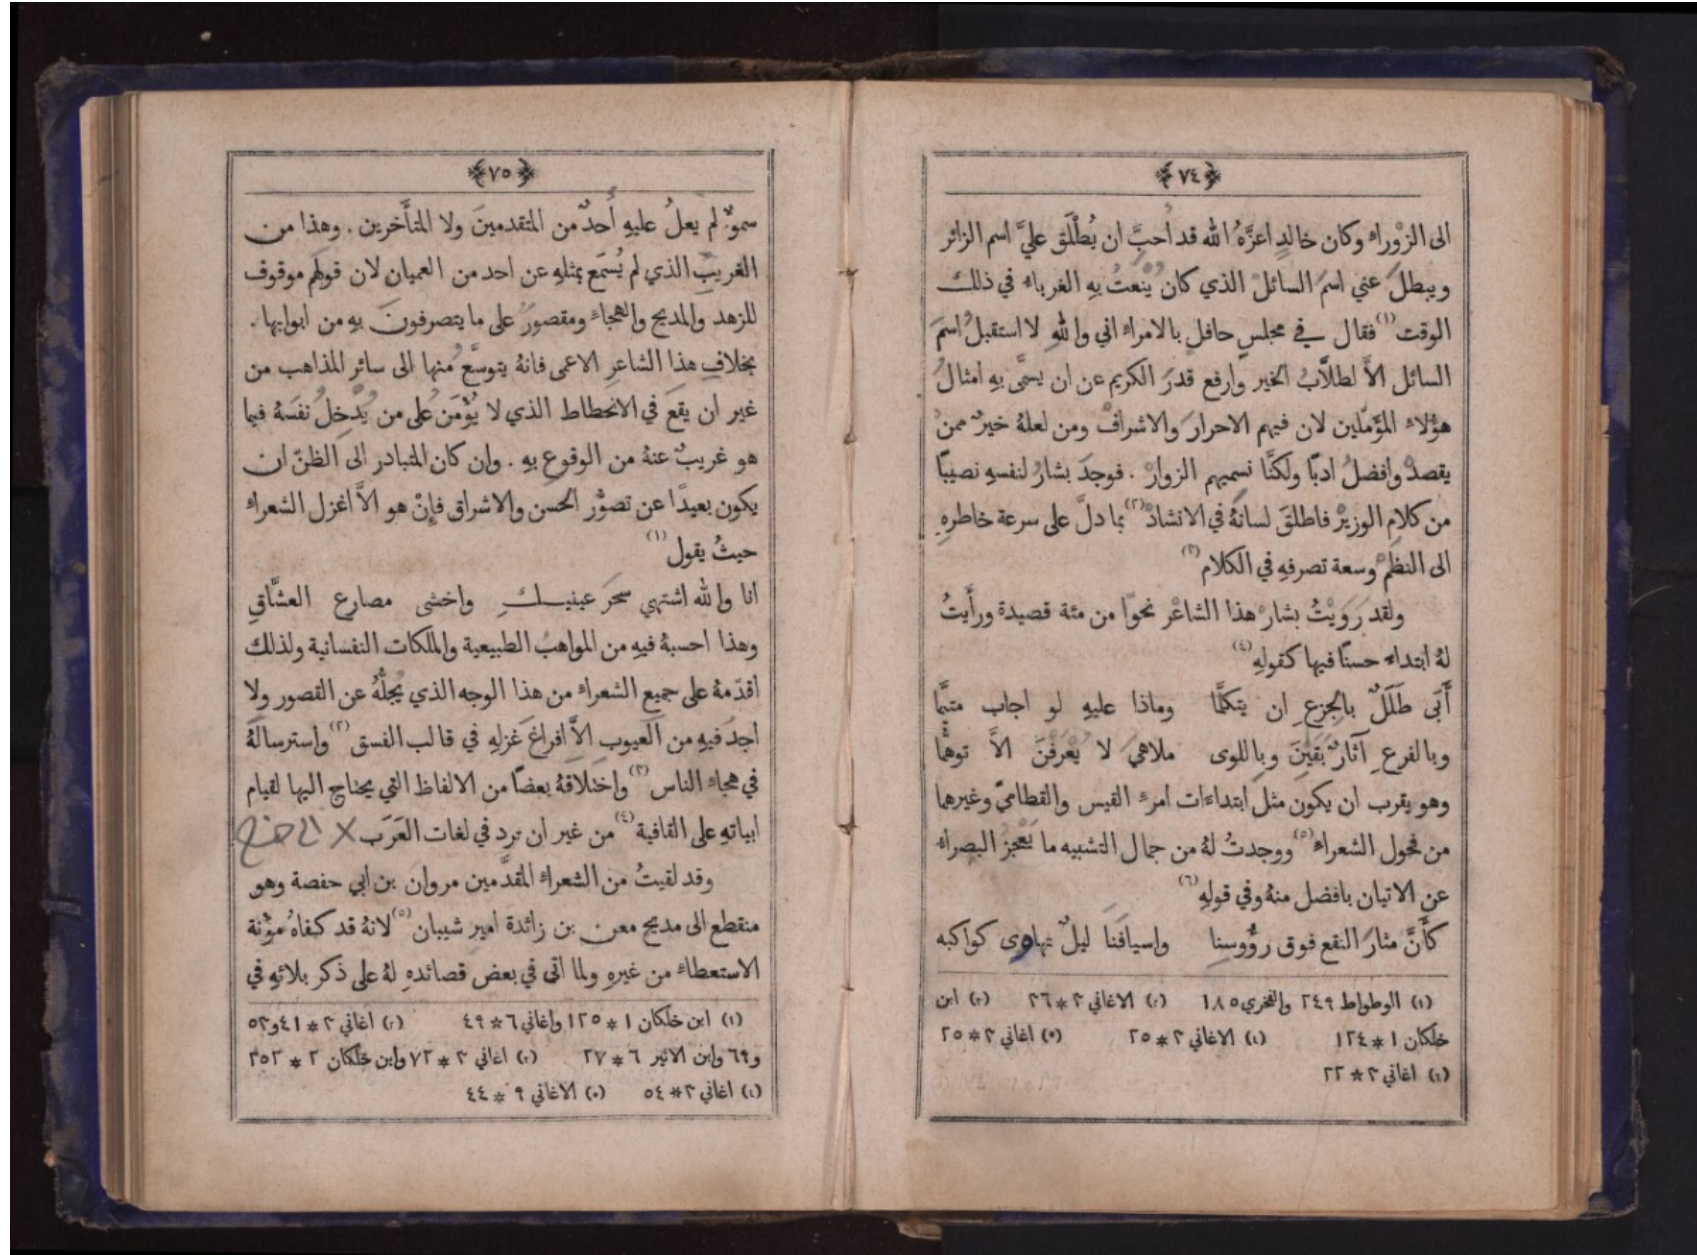 ﴿٧٤﴾
الى الزوراء وكان خالد اعزَّهُ الله قد أحبَّ ان يُطلَق عليَّ اسم الزائر
ويبطلَ عني اسمَ السائل الذي كان يُنْعتُ بهِ الغرباء في ذلك
الوقت (١) فقال في مجلسٍ حافلٍ بالامراء اني والله لا استقبلُ اسمَ
السائل الاَّ لطلاَّب الخير وارفع قدرَ الكريم عن ان يسمَّى بهِ امثال
هؤلاء المؤمّلين لان فيهم الاحرارَ والاشراف ومن لعلهُ خيرٌ ممن
يقصد وافضلُ ادبًا ولكنَّا نسميهم الزوار . فوجدَ بشارُ لنفسهِ نصيبًا
من كلام الوزير فاطلقَ لسانهُ في الانشاد (٢) بما دلَّ على سرعة خاطرهِ
الى النظم وسعة تصرفهِ في الكلام (٣)
ولقد رَوَيْتُ بشار هذا الشاعر نحوًا من مئة قصيدة ورأَيتُ
لهُ ابتداء حسنًا فيها كقولهِ (٤)
أَبَى طَلَلٌ بالجِزعِ ان يتكلَّما وماذا عليهِ لو اجاب متيَّما
وبالفرعِ آثارٌ بَقَيْنَ وباللوى ملاهيَ لا يُعْرَفْنَ الاَّ توهُّما
وهو يقرب ان يكون مثل ابتداءات امرء القيس والقطاميّ وغيرهما
من فحول الشعراء (٥) ووجدتُ لهُ من جمال التشبيه ما يَعْجز البصراء
عن الاتيان بافضل منهُ وفي قولهِ (٦)
كأَنَّ مثارَ النقع فوق رؤُوسِنا واسيافَنَا ليلٌ تهاوى كواكبه
(١) الوطواط ٢٤٩ والفخري ١٨٥ (٢) الاغاني ٣ * ٣٦ (٣) ابن
خلكان ١ * ١٢٤ (٤) الاغاني ٣ * ٢٥ (٥) اغاني ٣ * ٢٥
(٦) اغاني ٣ * ٢٢
﴿٧٥﴾
سموّ لم يعلُ عليهِ أَحدٌ من المتقدمينَ ولا المتأَخرين . وهذا من
الغريب الذي لم يُسمَع بمثلهِ عن احد من العميان لان قولهم موقوف
للزهد والمديح والهجاء ومقصورٌ على ما يتصرفونَ بهِ من ابوابها .
بخلافِ هذا الشاعرِ الاعمى فانهُ يتوسَّع منها الى سائر المذاهب من
غير ان يقعَ في الانحطاط الذي لا يُؤْمَن على من يُدْخِلُ نفسَهُ فيما
هو غريبٌ عنهُ من الوقوع بهِ . وان كان المتبادر الى الظنّ ان
يكون بعيدًا عن تصوُّر الحسن والاشراق فإنْ هو الاَّ اغزل الشعراء
حيثُ يقول (١)
انا والله اشتهي سحرَ عينيـكِ واخشى مصارع العشَّاقِ
وهذا احسبهُ فيهِ من المواهب الطبيعية والملكات النفسانية ولذلك
اقدّمهُ على جميع الشعراء من هذا الوجه الذي يُجلُّهُ عن القصور ولا
اجدَ فيهِ من العيوب الاَّ افراغَ غزلهِ في قالب الفسق (٢) واسترسالَهُ
في هجاء الناس (٣) واختلاقهُ بعضًا من الالفاظ التي يحتاج اليها لقيام
ابياتهِ على القافية (٤) من غير ان ترد في لغات العَرَب
وقد لقيتُ من الشعراء المقدَّمين مروان بن ابي حفصة وهو
منقطع الى مديح معن بن زائدة امير شيبان (٥) لانهُ قد كفاهُ مؤنة
الاستعطاء من غيرهِ ولما اتى في بعض قصائدهِ لهُ على ذكر بلائهِ في
(١) ابن خلكان ١ * ١٢٥ واغاني ٦ * ٤٩ (٢) اغاني ٣ * ٤١ و٥٣
و٦٩ وابن الاثير ٦ * ٢٧ (٣) اغاني ٣ * ٧٢ وابن خلكان ٢ * ٣٥٢
(٤) اغاني ٣ * ٥٤ (٥) الاغاني ٩ * ٤٤